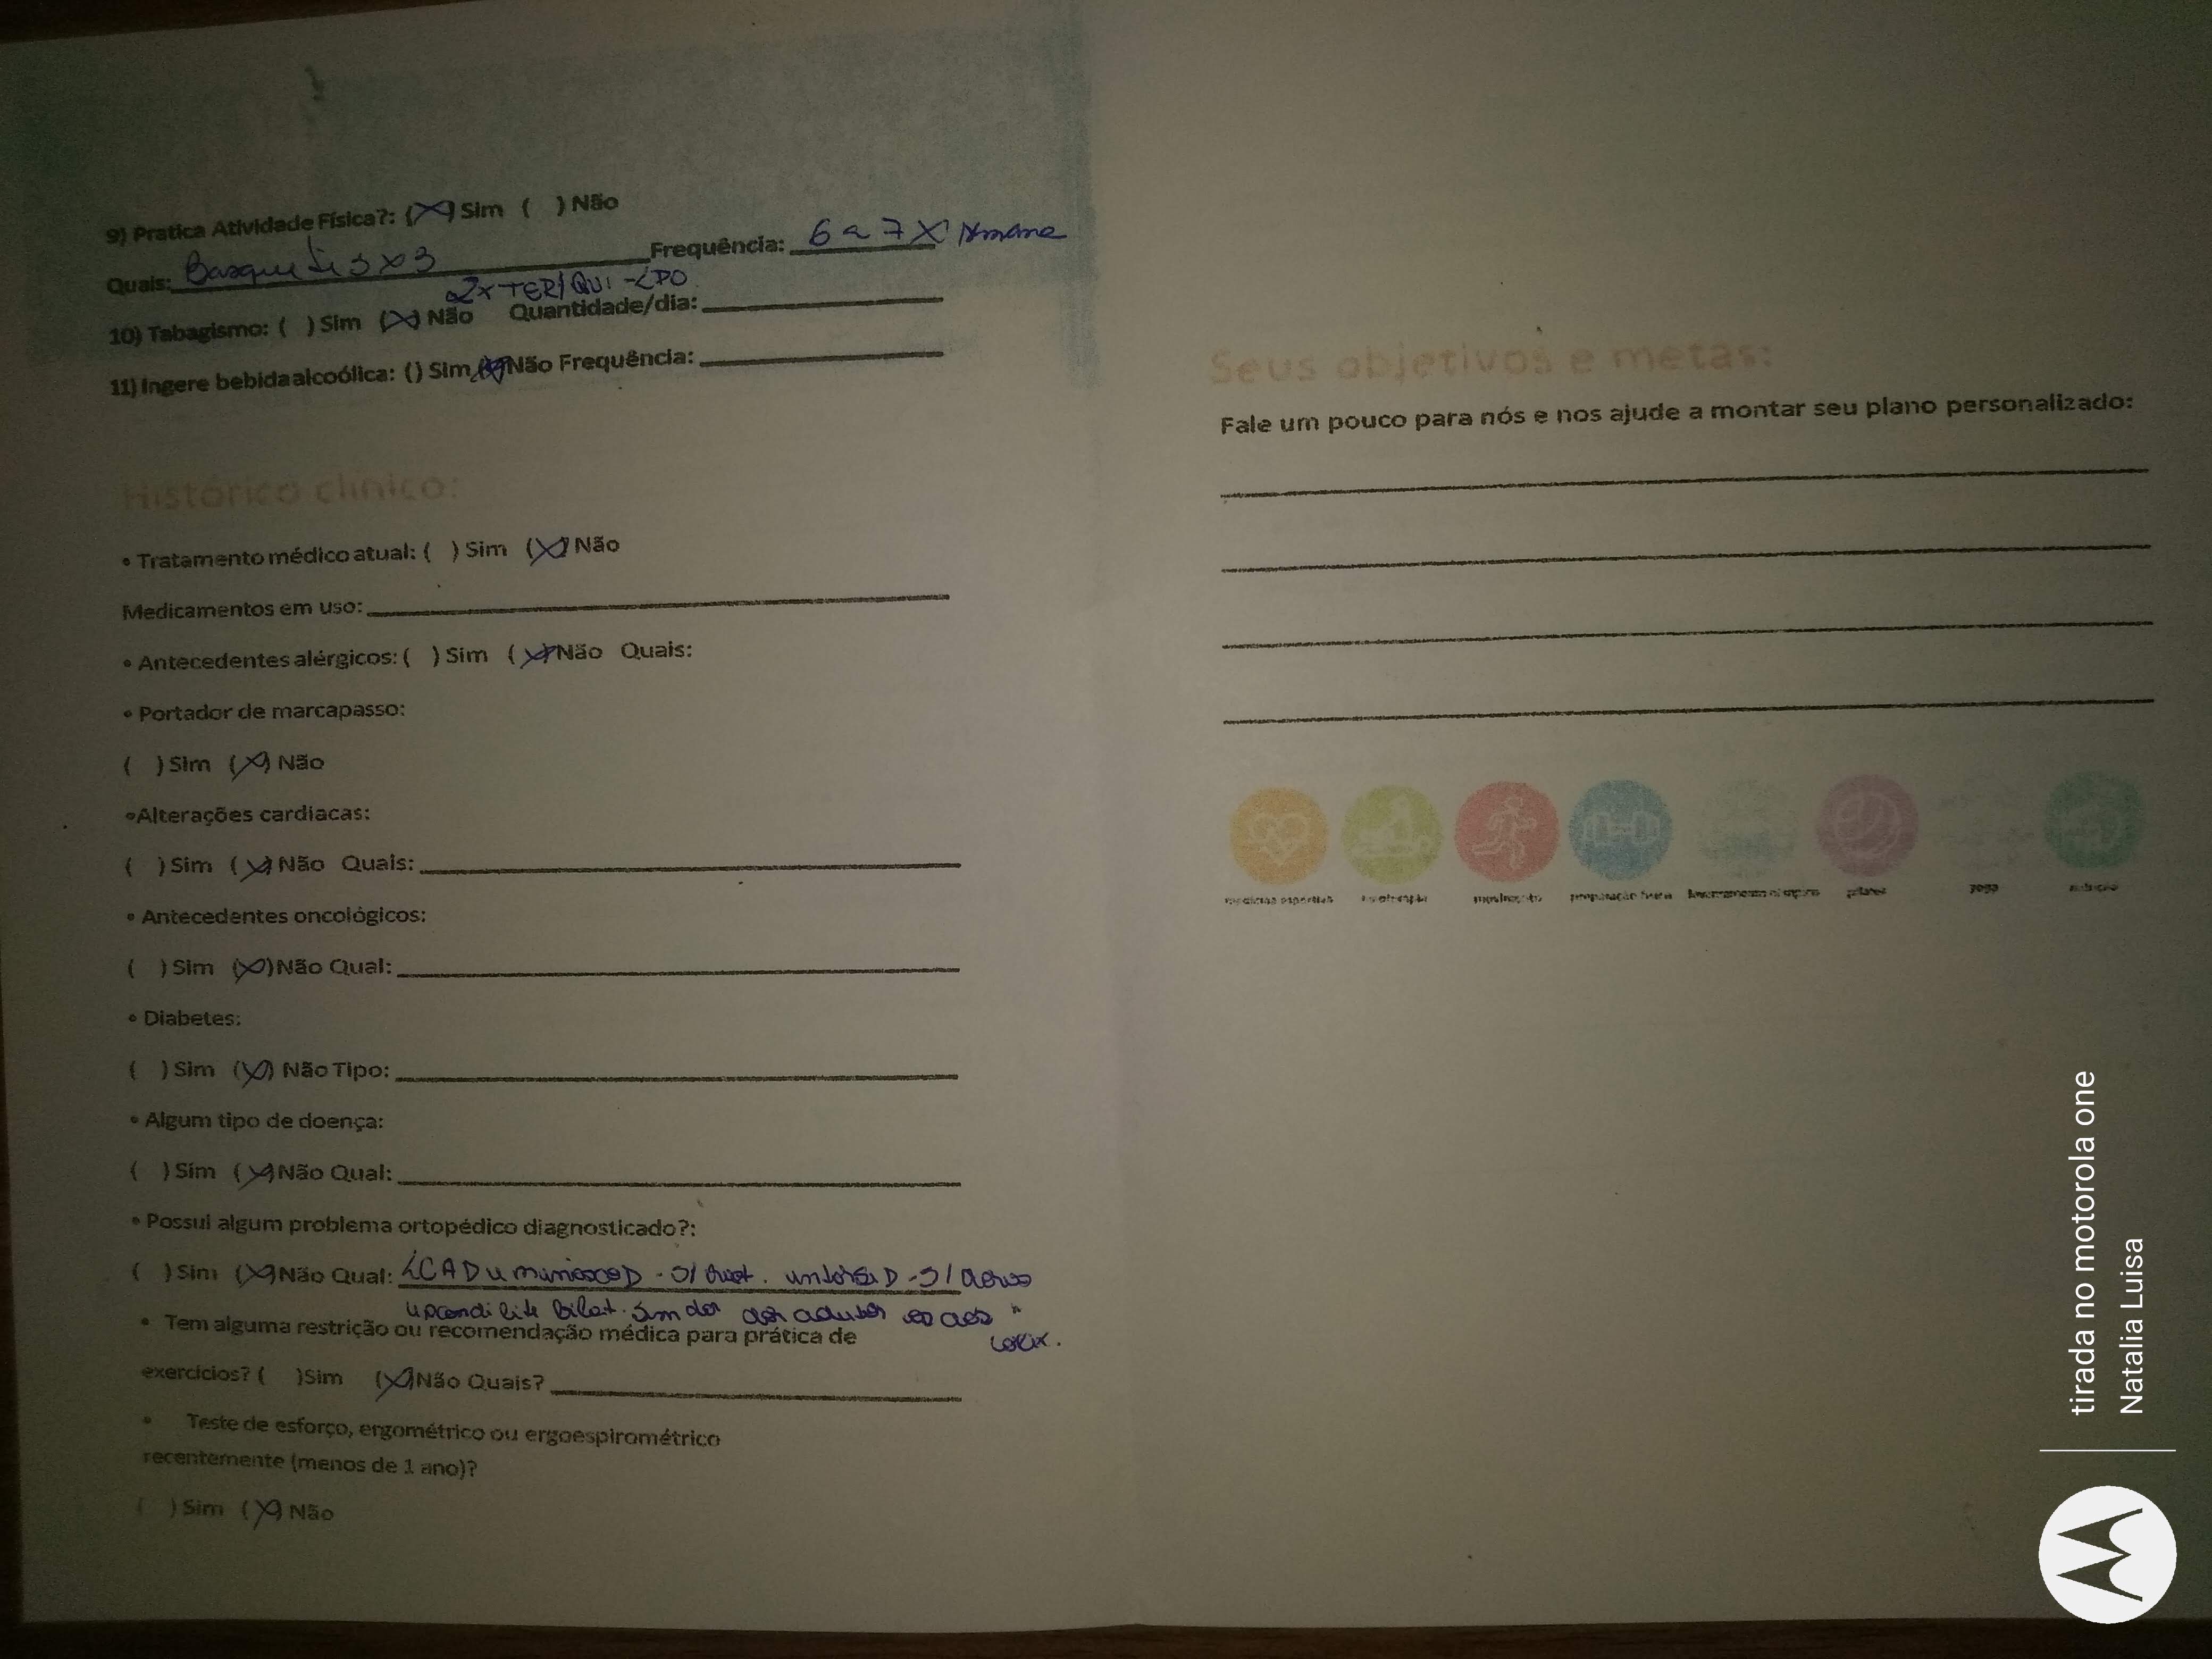 9) Pratica Atividade Física?: (X) Sim ( ) Não
Quais: Basquete 3x3 Frequência: 6 a 7 X
2x TER/QUI -
10) Tabagismo: ( ) Sim (X) Não Quantidade/dia:
11) Ingere bebida alcoólica: () Sim (X) Não Frequência:
Histórico clínico:
• Tratamento médico atual: ( ) Sim (X) Não
Medicamentos em uso:
• Antecedentes alérgicos: ( ) Sim (X) Não Quais:
• Portador de marcapasso:
( ) Sim (X) Não
•Alterações cardíacas:
( ) Sim (X) Não Quais:
• Antecedentes oncológicos:
( ) Sim (X) Não Qual:
• Diabetes:
( ) Sim (X) Não Tipo:
• Algum tipo de doença:
( ) Sim (X) Não Qual:
• Possui algum problema ortopédico diagnosticado?:
( ) Sim (X) Não Qual:
bilat.
• Tem alguma restrição ou recomendação médica para prática de
exercícios? ( ) Sim (X) Não Quais?
• Teste de esforço, ergométrico ou ergoespirométrico
recentemente (menos de 1 ano)?
( ) Sim (X) Não
Seus objetivos e metas:
Fale um pouco para nós e nos ajude a montar seu plano personalizado:
medicina esportiva fisioterapia musculação preparação física pilates yoga
tirada no motorola one
Natalia Luisa